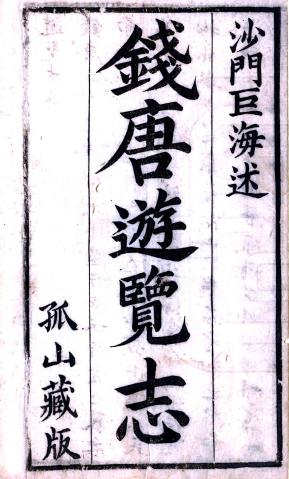 沙門巨海述
錢唐遊覽志
孤山藏版